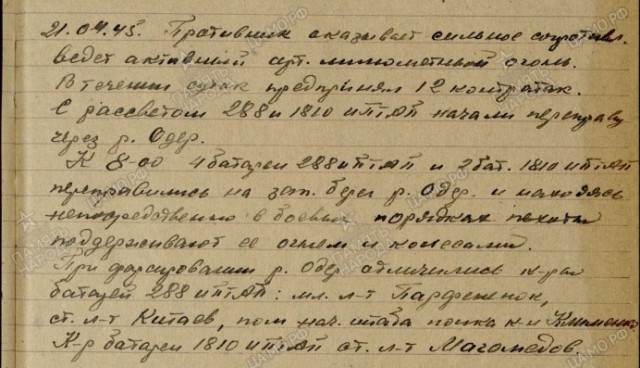 21.04.45. Противник оказывает сильное сопротивл.
ведет активный арт. минометный огонь.
В течении суток предпринял 12 контратак.
С рассветом 288 и 1810 иптап начали переправу
через р. Одер.
К 8-00 4 батареи 288 иптап и 2 бат. 1810 иптап
переправились на зап. берег р. Одер. и находясь
непосредственно в боевых порядках пехоты
поддерживают ее огнем и колесами.
При форсировании р. Одер отличились к-ры
батарей 288 иптап: мл. л-т Парфененок,
ст. л-т Китаев, пом. нач. штаба полка к-н Клименко
К-р батареи 1810 иптап ст. л-т Магомедов.
ЦАМО.РФ